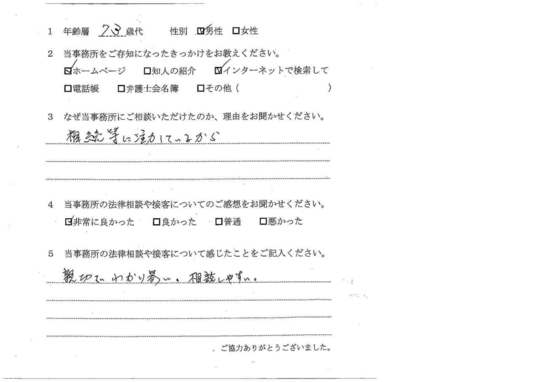 1 年齢層 73 歳代 性別 ☑男性 □女性
2 当事務所をご存知になったきっかけをお教えください。
☑ホームページ □知人の紹介 ☑インターネットで検索して
□電話帳 □弁護士会名簿 □その他( )
3 なぜ当事務所にご相談いただけたのか、理由をお聞かせください。
相続等に
4 当事務所の法律相談や接客についてのご感想をお聞かせください。
☑非常に良かった □良かった □普通 □悪かった
5 当事務所の法律相談や接客について感じたことをご記入ください。
親切でわかり易い。相談しやすい。
ご協力ありがとうございました。